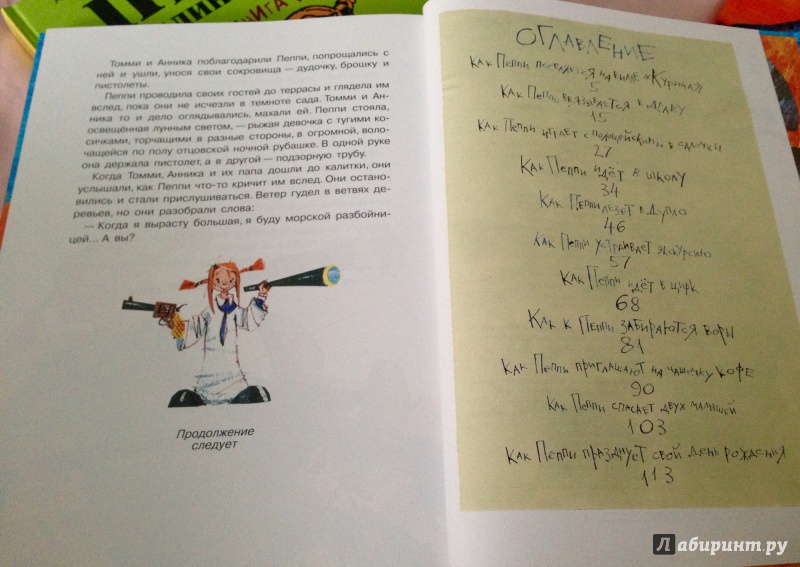 Томми и Анника поблагодарили Пеппи, попрощались с
ней и ушли, унося свои сокровища — дудочку, брошку и
пистолеты.
Пеппи проводила своих гостей до террасы и глядела им
вслед, пока они не исчезли в темноте сада. Томми и Ан-
ника то и дело оглядывались, махали ей. Пеппи стояла,
освещённая лунным светом, — рыжая девочка с тугими ко-
сичками, торчащими в разные стороны, в огромной, воло-
чащейся по полу отцовской ночной рубашке. В одной руке
она держала пистолет, а в другой — подзорную трубу.
Когда Томми, Анника и их папа дошли до калитки, они
услышали, как Пеппи что-то кричит им вслед. Они остано-
вились и стали прислушиваться. Ветер гудел в ветвях де-
ревьев, но они разобрали слова:
— Когда я вырасту большая, я буду морской разбойни-
цей... А вы?
Продолжение
следует
ОГЛАВЛЕНИЕ
Как Пеппи поселяется на вилле «Курица»
5
Как Пеппи ввязывается в драку
15
Как Пеппи играет с полицейскими в салочки
27
Как Пеппи идёт в школу
34
Как Пеппи лезет в дупло
46
Как Пеппи устраивает экскурсию
57
Как Пеппи идёт в цирк
68
Как к Пеппи забираются воры
81
Как Пеппи приглашают на чашечку кофе
90
Как Пеппи спасает двух малышей
103
Как Пеппи празднует свой день рождения
113
Лабиринт.ру